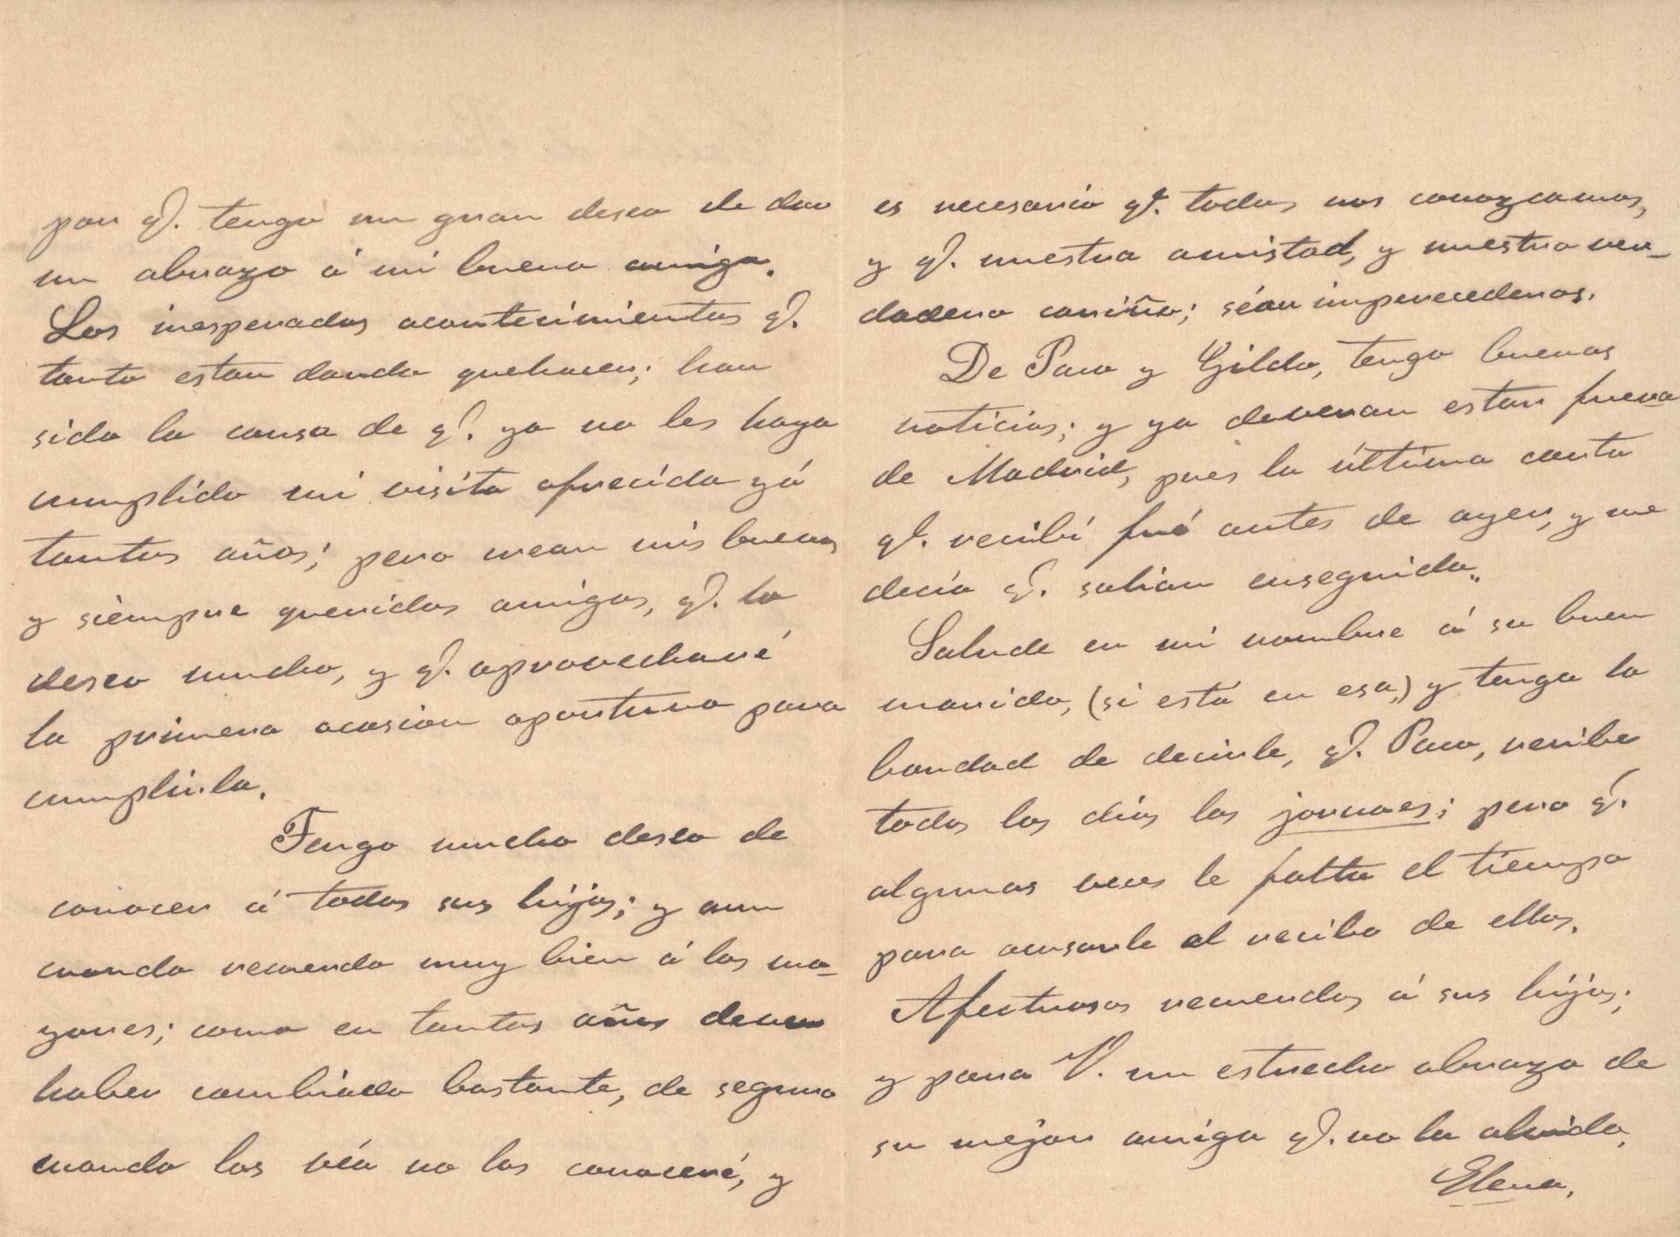 por q.̧ tengo un gran deseo de dar
un abrazo á mi buena amiga.
Los inesperados acontecimientos q.
tanto estan dando quehacer; han
sido la causa de q. ya no les haya
cumplido mi visita ofrecida yá
tantos años; pero crean mis buenos
y siempre queridos amigos, q. la
deseo mucho, y q. aprovecharé
la primera ocasion oportuna para
cumplirla.
Tengo mucho deseo de
conocer á todos sus hijos; y aun
cuando recuerdo muy bien á los ma-
yores; como en tantos años deven
haber cambiado bastante, de seguro
cuando los véa no los conoceré, y
es necesario q. todos nos conozcamos,
y q. nuestra amistad, y nuestro ver-
dadero cariño; séan imperecederos.
De Paco y Gilda, tengo buenas
noticias; y ya deveran estar fuera
de Madrid, pues la última carta
q. recibí fué antes de ayer, y me
decía q. salian enseguida.
Salude en mi nombre á su buen
marido, (si está en esa,) y tenga la
bondad de decirle, q. Paco, recibe
todos los dias los jornaes; pero q.
algunas veces le falta el tiempo
para acusarle el recibo de ellos.
Afectuosos recuerdos á sus hijos;
y para V. un estrecho abrazo de
su mejor amiga q. no la olvida,
Elena.